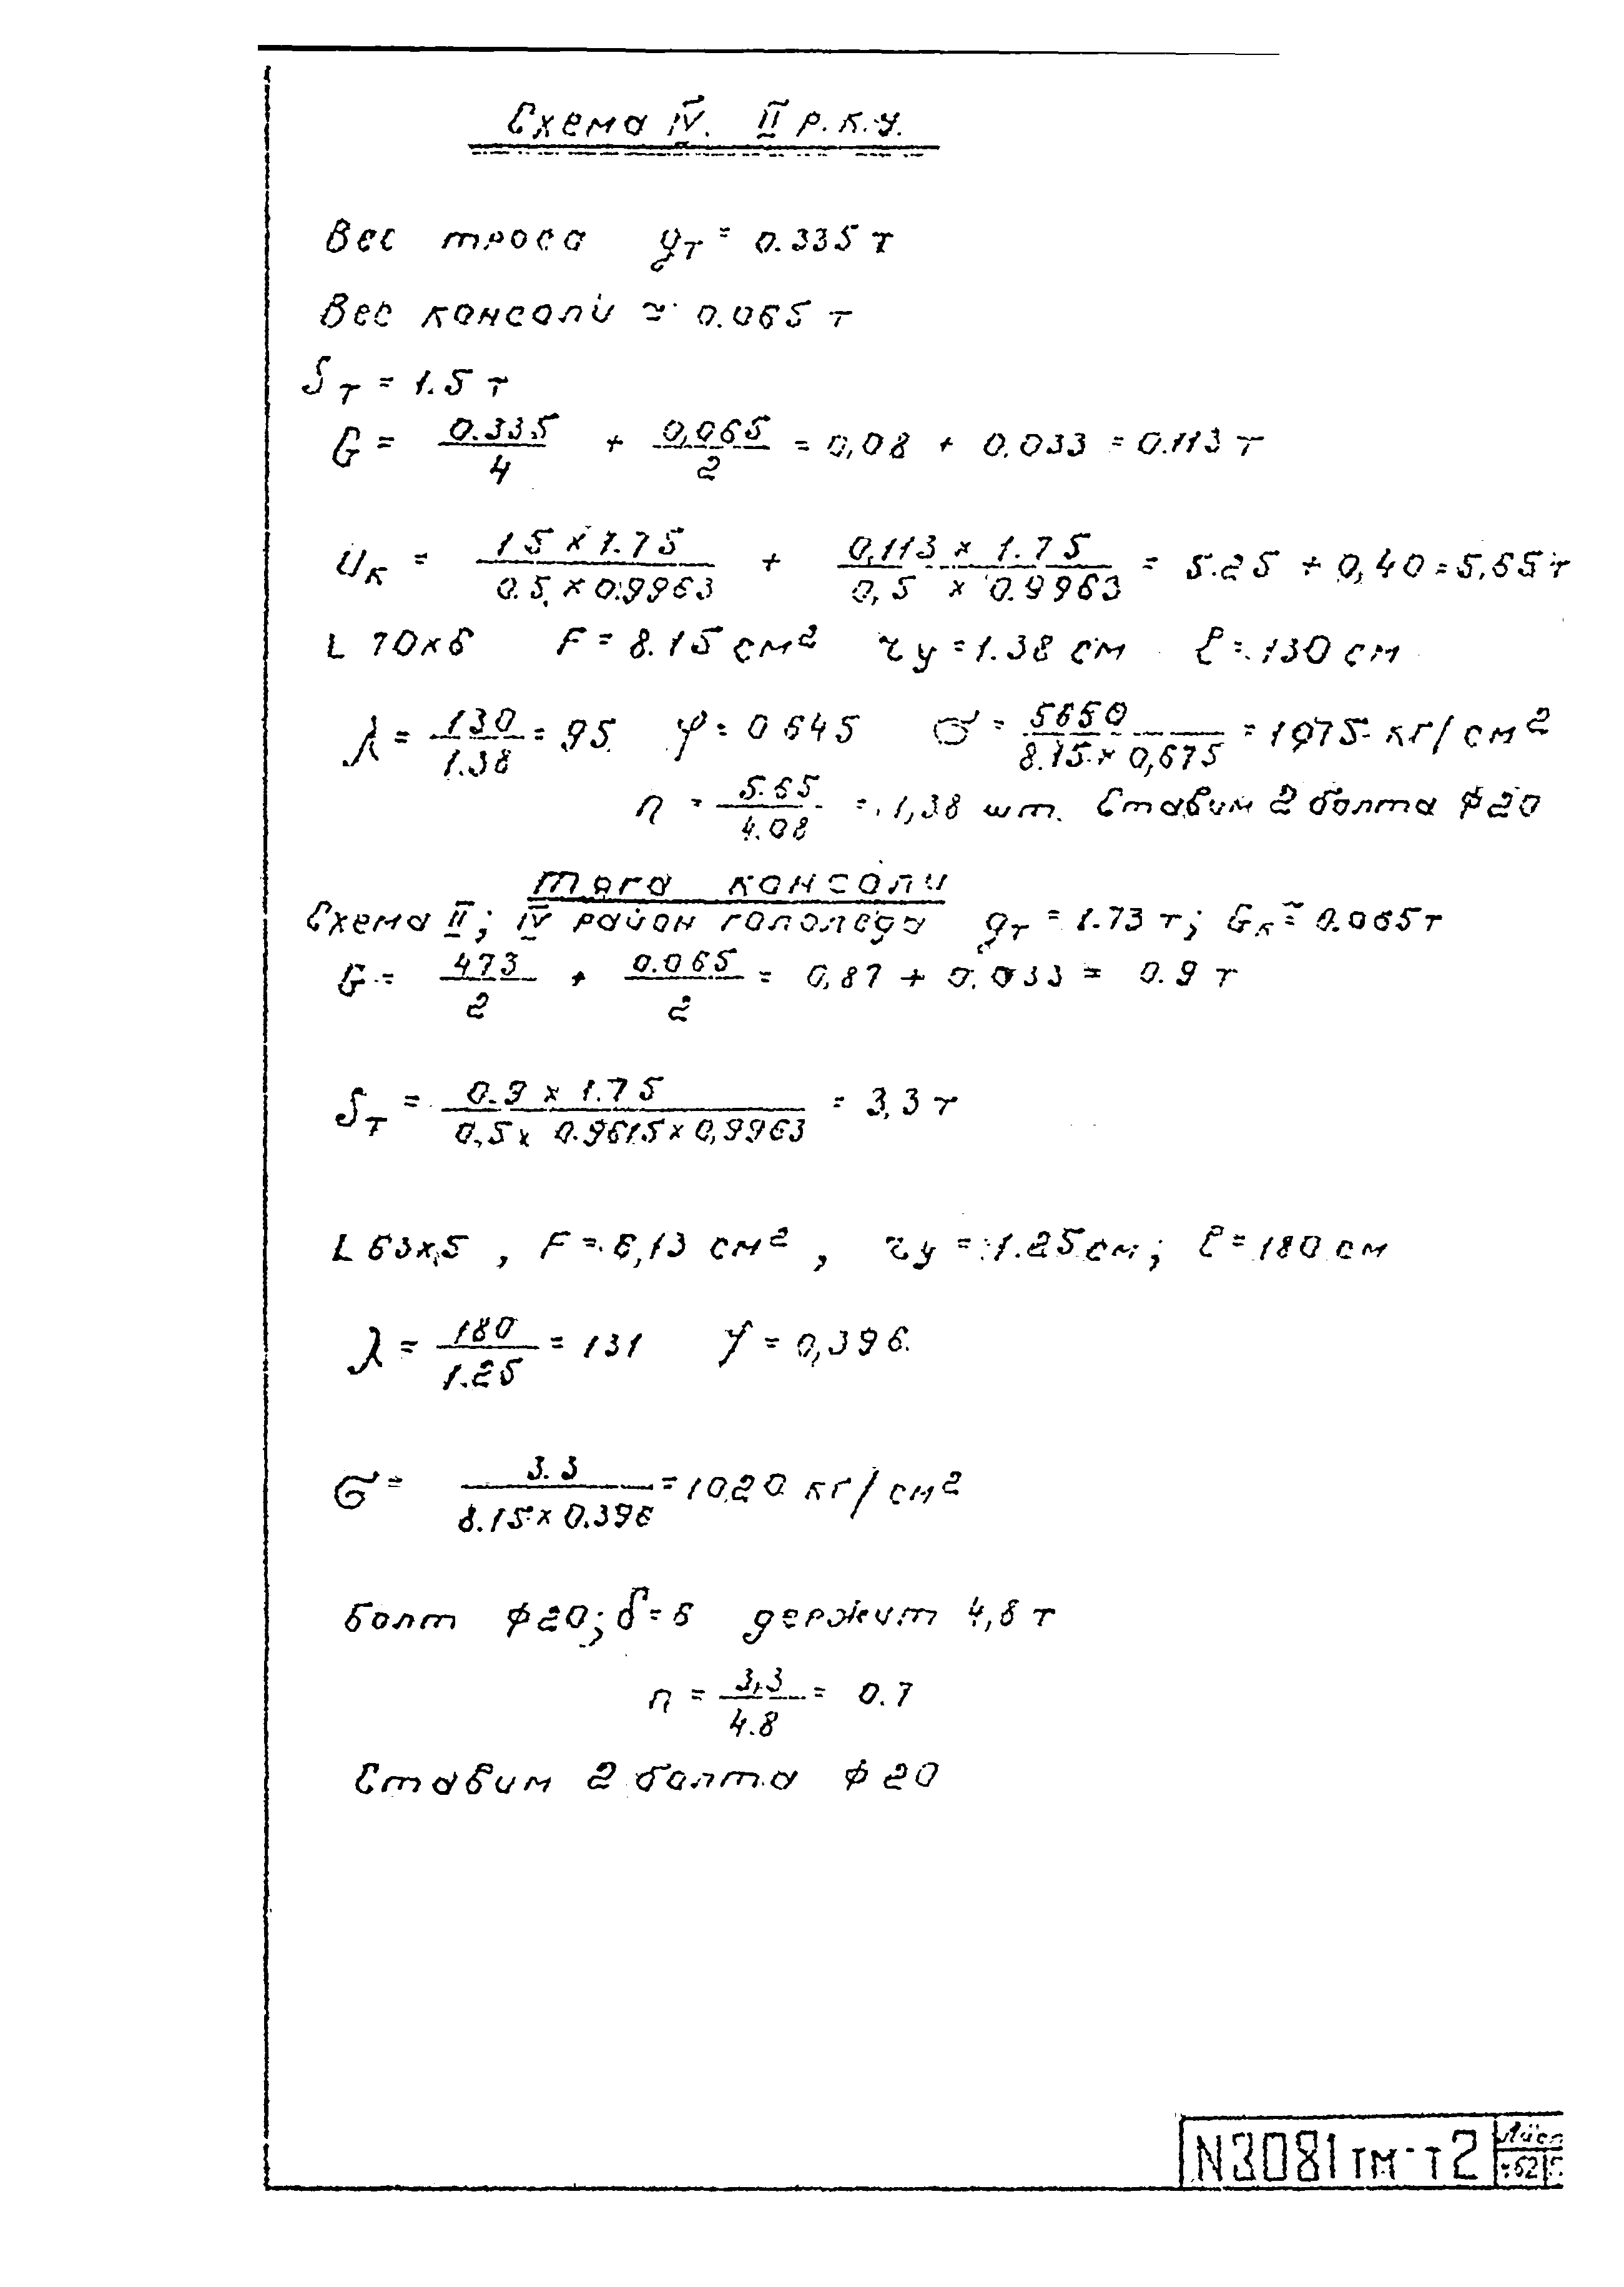 Схема IV. II р.к.у.
Вес троса gт = 0.335 т
Вес консоли ≃ 0.065 т
Sт = 1.5 т
G = 0.335/4 + 0,065/2 = 0,08 + 0.033 = 0.113 т
Uк = 1 5 × 1.75 / 0.5 × 0.9963 + 0,113 × 1.75 / 0,5 × 0.9963 = 5.25 + 0,40 = 5,65 т
L 70×6 F = 8.15 см² ry = 1.38 см ℓ = 130 см
λ = 130/1.38 = 95 φ = 0 645 σ = 5650 / 8.15 × 0,675 = 1075 кг/см²
n = 5.65/4.08 = 1,38 шт. Ставим 2 болта ф20
Тяга консоли
Схема II; IV район гололеда gт = 1.73 т; Gк ≃ 0.065 т
G = 473/2 + 0.065/2 = 0,87 + 0.033 = 0.9 т
Sт = 0.9 × 1.75 / 0,5 × 0.9615 × 0,9963 = 3,3 т
L 63×5 , F = 6,13 см² , ry = 1.25 см; ℓ = 180 см
λ = 180/1.25 = 131 φ = 0,396
σ = 3.3 / 8.15 × 0.396 = 1020 кг/см²
болт ф20; δ = 6 держит 4,8 т
n = 3,3/4.8 = 0.7
Ставим 2 болта ф 20
N3081тм-т2
62